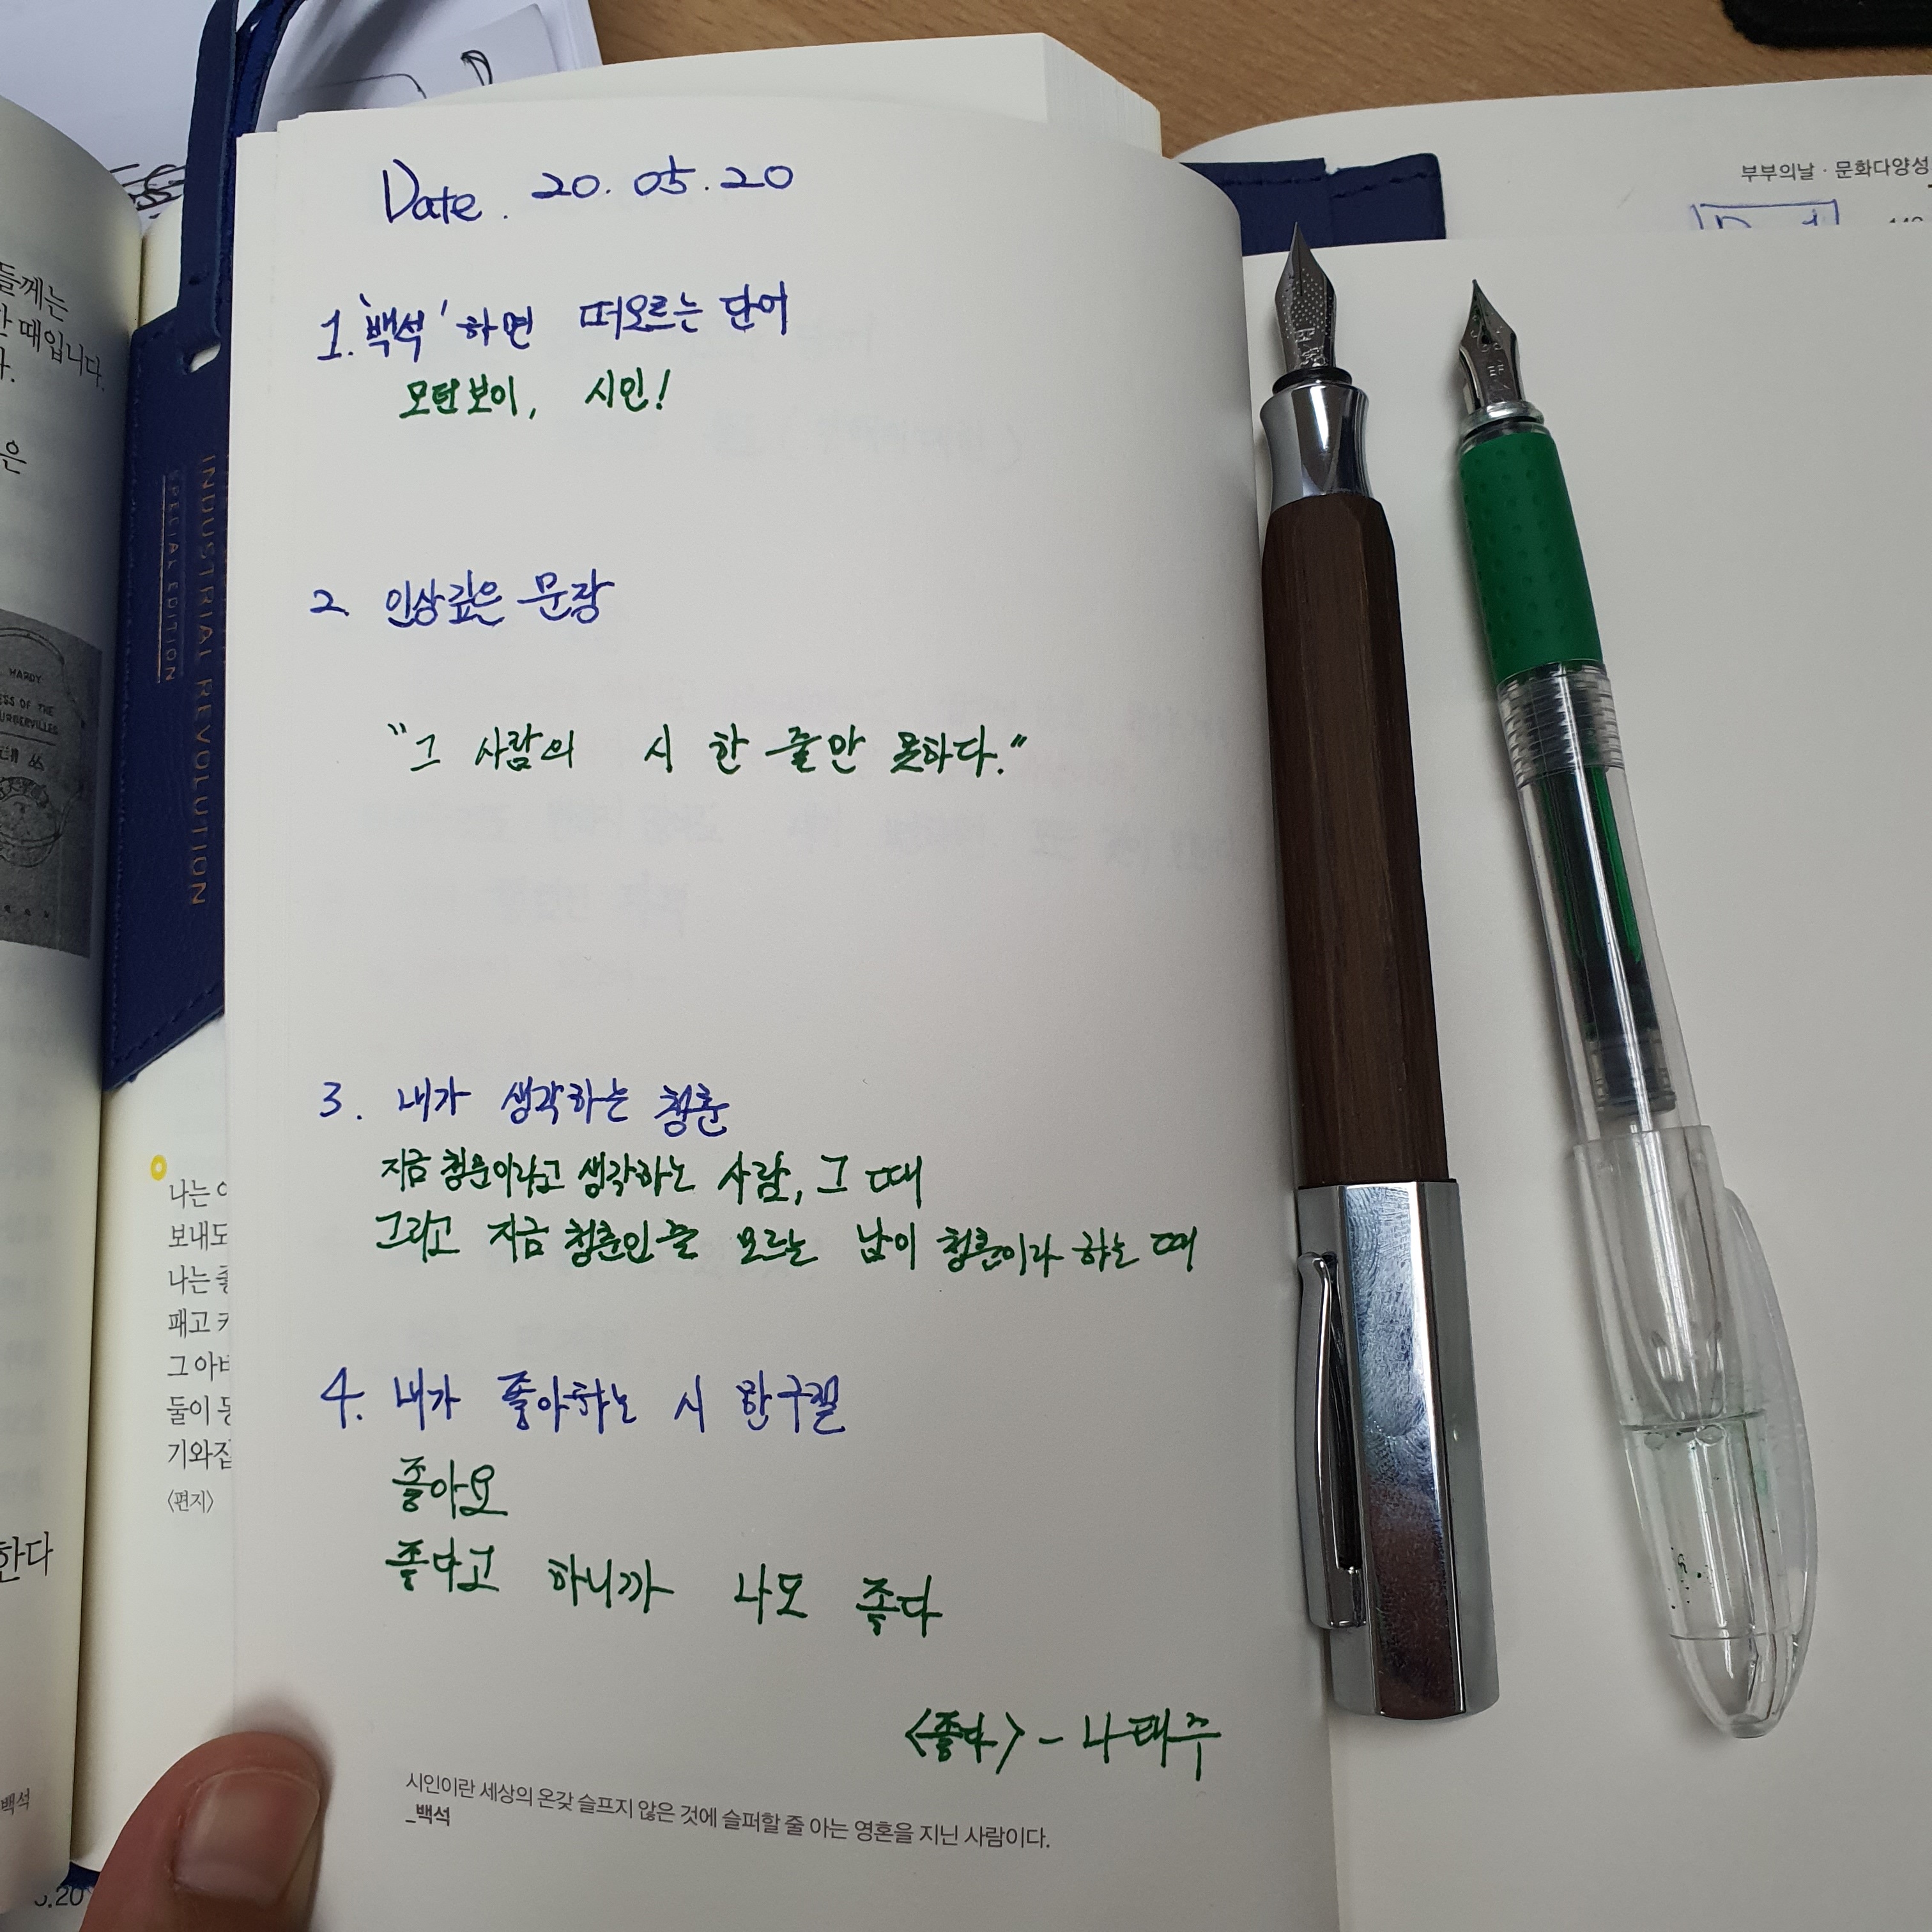 들께는
때입니다.
은
HARDY
ESS OF THE
URBERVILLES
INDUSTRIAL REVOLUTION
SPECIAL EDITION
나는
보내도
나는
패고
그아버
둘이
기와집
<편지>
한다
백석
5.20
Date. 20.05.20
1. '백석' 하면 떠오르는 단어
모던보이, 시인!
2. 인상깊은 문장
"그 사람의 시 한 줄만 못하다."
3. 내가 생각하는 청춘
지금 청춘이라고 생각하는 사람, 그 때
그리고 지금 청춘인 줄 모르는 남이 청춘이라 하는 때
4. 내가 좋아하는 시 한 구절
좋아요
좋다고 하니까 나도 좋다
<좋다> - 나태주
시인이란 세상의 온갖 슬프지 않은 것에 슬퍼할 줄 아는 영혼을 지닌 사람이다.
_백석
부부의날 · 문화다양성
EF